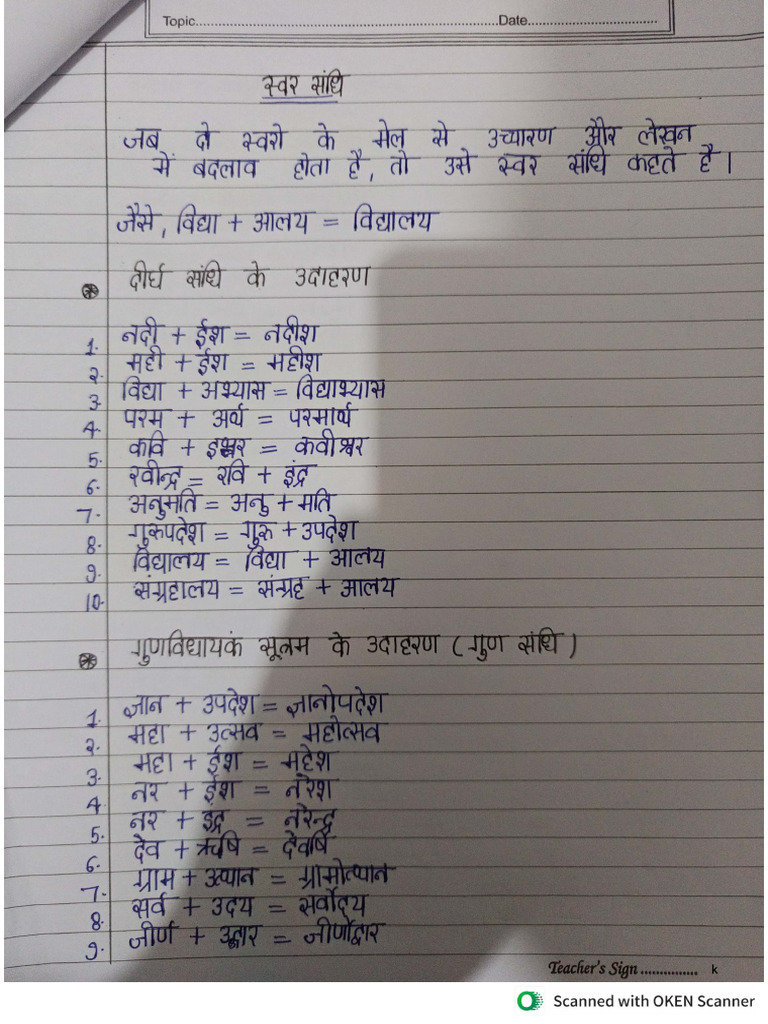 Topic..............................................................................Date.................................
स्वर संधि
जब दो स्वरो के मेल से उच्चारण और लेखन
में बदलाव होता है, तो उसे स्वर संधि कहते है।
जैसे, विद्या + आलय = विद्यालय
दीर्घ संधि के उदाहरण
1. नदी + ईश = नदीश
2. मही + ईश = महीश
3. विद्या + अभ्यास = विद्याभ्यास
4. परम + अर्थ = परमार्थ
5. कवि + इश्वर = कवीश्वर
6. रवीन्द्र = रवि + इंद्र
7. अनुमति = अनु + मति
8. गुरुपदेश = गुरु + उपदेश
9. विद्यालय = विद्या + आलय
10. संग्रहालय = संग्रह + आलय
गुणविधायकं सूत्रम के उदाहरण (गुण संधि)
1. ज्ञान + उपदेश = ज्ञानोपदेश
2. महा + उत्सव = महोत्सव
3. महा + ईश = महेश
4. नर + ईश = नरेश
5. नर + इंद्र = नरेन्द्र
6. देव + ऋषि = देवर्षि
7. ग्राम + उत्थान = ग्रामोत्थान
8. सर्व + उदय = सर्वोदय
9. जीर्ण + उद्धार = जीर्णोद्वार
Teacher's Sign ............... k
Scanned with OKEN Scanner